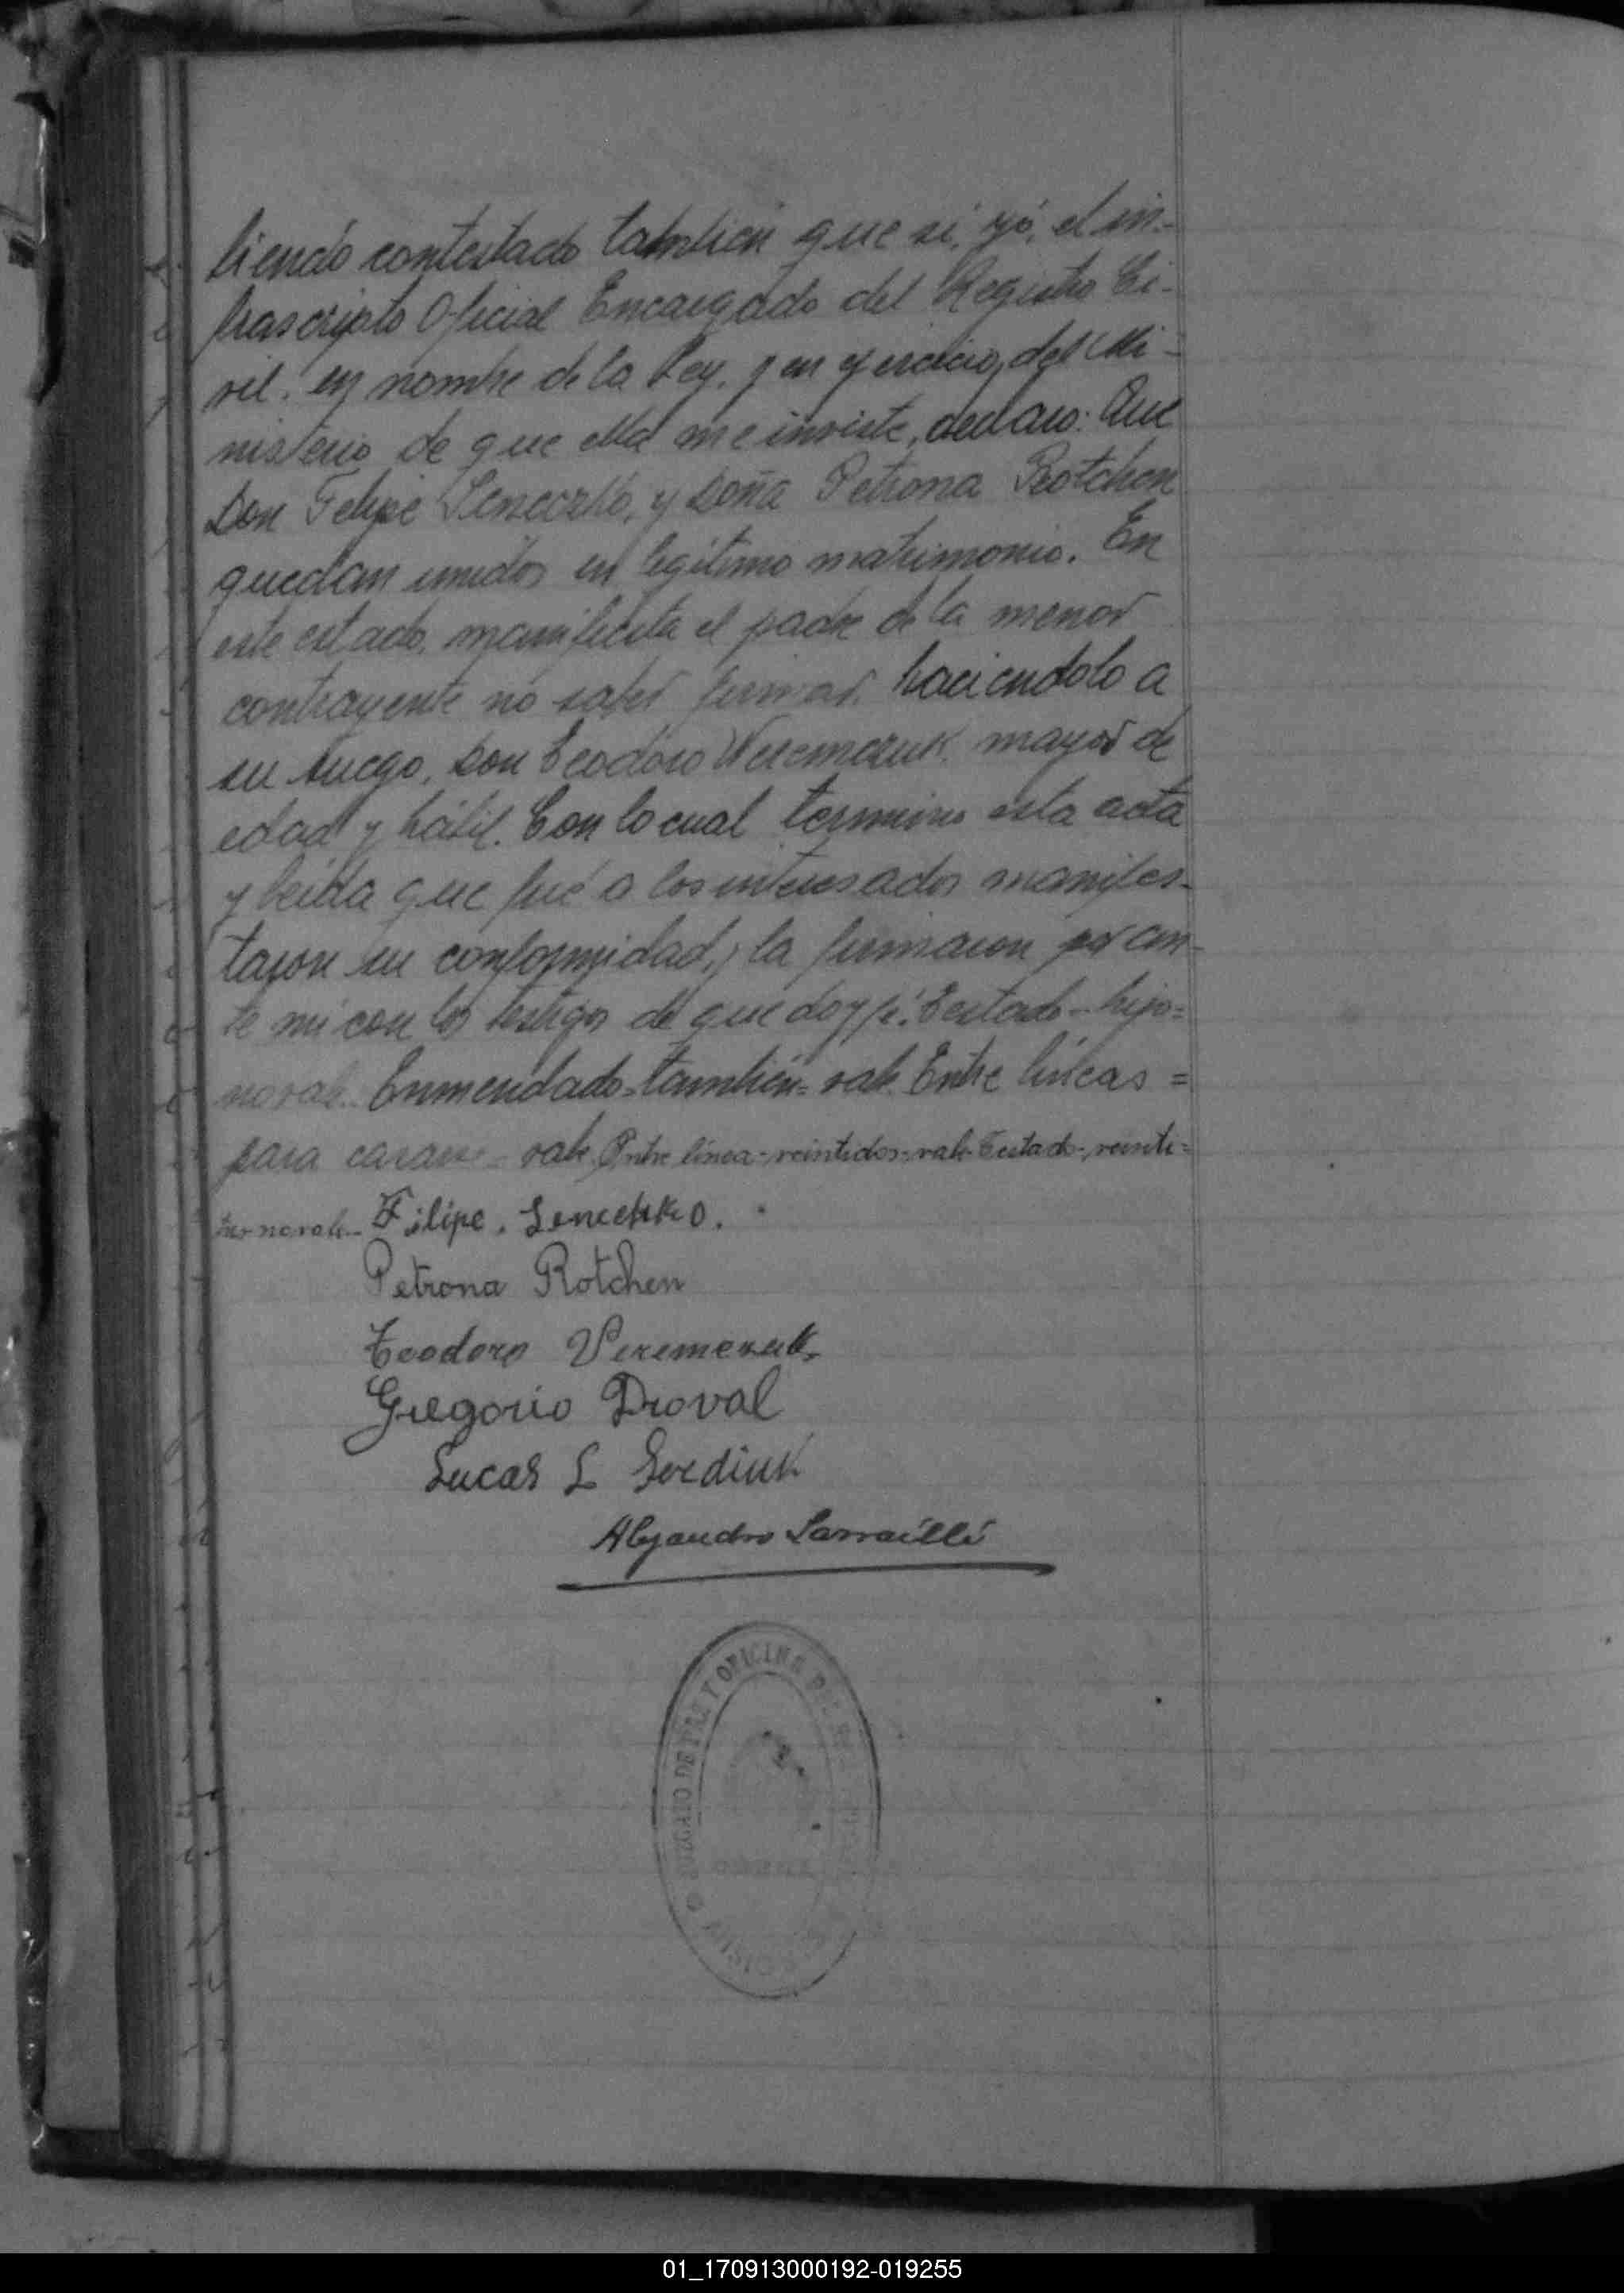 biendo contestado también que si, yó, el in-
frascripto Oficial Encargado del Registro Ci-
vil, en nombre de la Ley, y en ejercicio, del Mi-
nisterio de que ella me inviste, declaro: Que
Don Felipe y Doña Petrona Rotchen
quedan unidos en legítimo matrimonio. En
este estado, manifiesta el padre de la menor
contrayente no saber firmar, haciendolo a
su ruego, Don Teodoro Weremczuk, mayor de
edad y hábil. Con lo cual termino esta acta
y leida que fué a los interesados manifes-
taron su conformidad, y la firmaron por an-
te mi con los testigos de que doy fé. Testado - hijo=
no vale. Enmendado=también=vale. Entre líneas =
para casarse - vale. Entre línea-veintidos-vale Testado-veinti=
tres no vale-
Filipe. Senechko.
Petrona Rotchen
Teodoro Veremczuk
Gregorio Droval
Lucas S Serdiuk
Alejandro Larraillé
JUZGADO DE PAZ Y OFICINA DEL
01_170913000192-019255